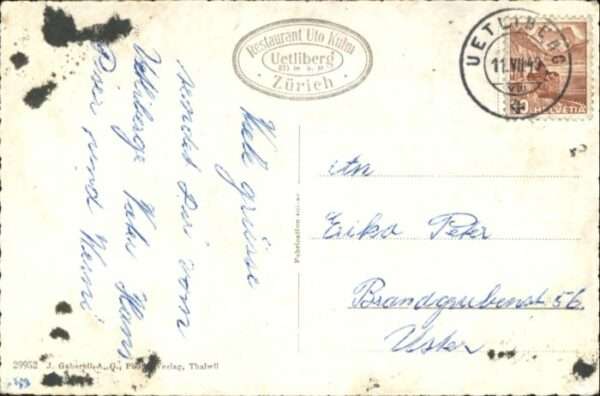 Restaurant Uto Kulm
Uetliberg
Zürich
UETLIBERG
11.VII.49
HELVETIA
Viele grüsse
sendet Dir vom
Uetliberge Vater Hans
und Werni
An
Erika Peter
Brandgrubenstr. 56.
Uster
29952 J. Gaberell A. G., Verlag, Thalwil